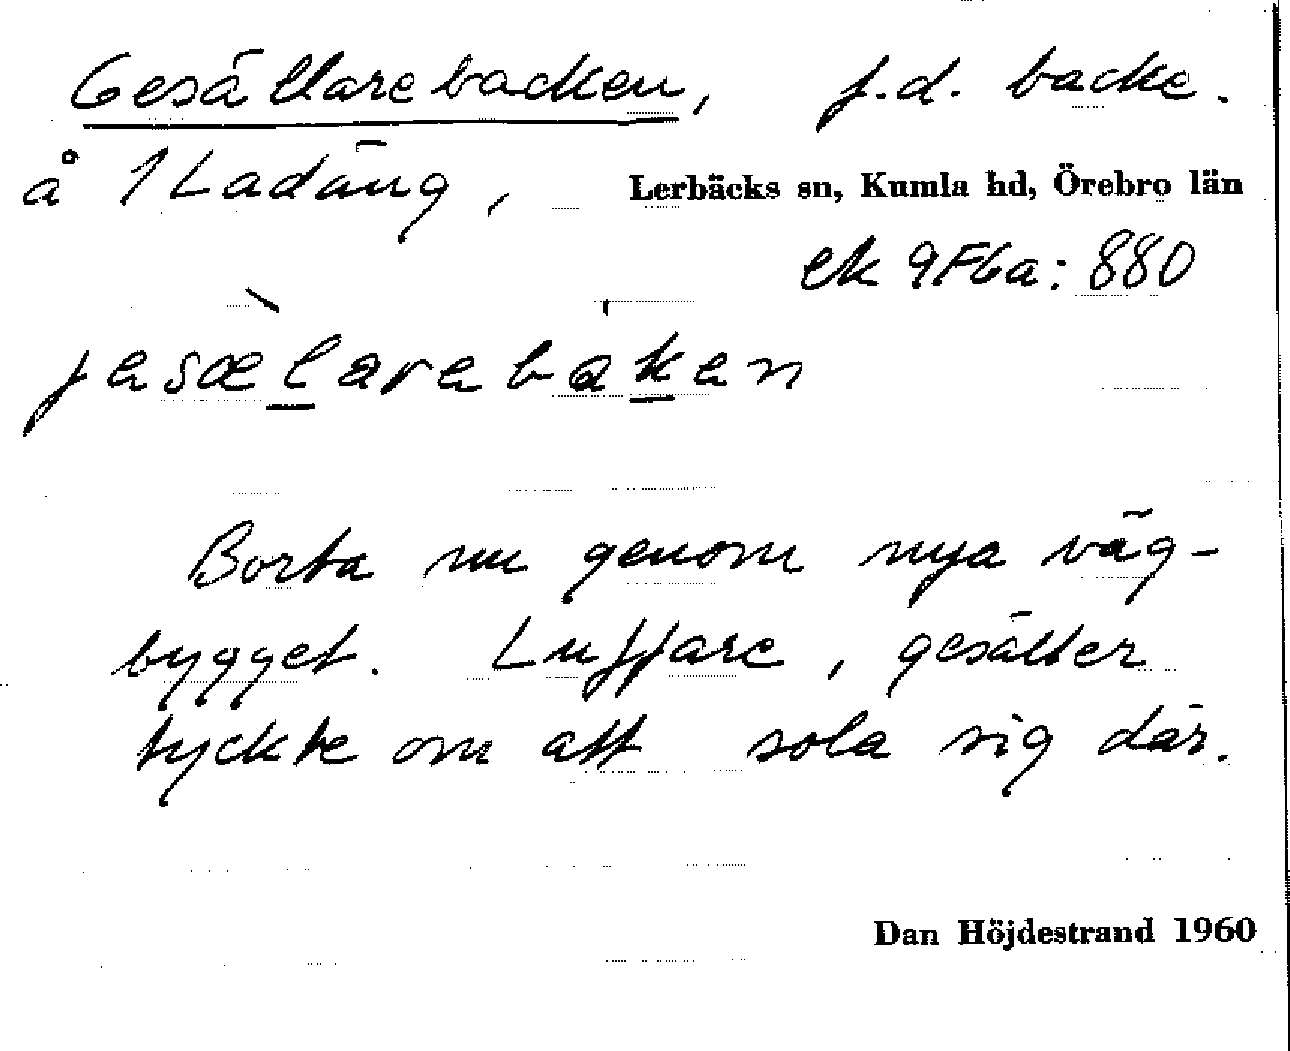 Gesällarebacken, f.d. backe.
å 1 Ladäng, Lerbäcks sn, Kumla hd, Örebro län
ek 9F6a:880
jesælarebaken
Borta nu genom nya väg-
bygget. Luffare, gesäller
tyckte om att sola sig där.
Dan Höjdestrand 1960